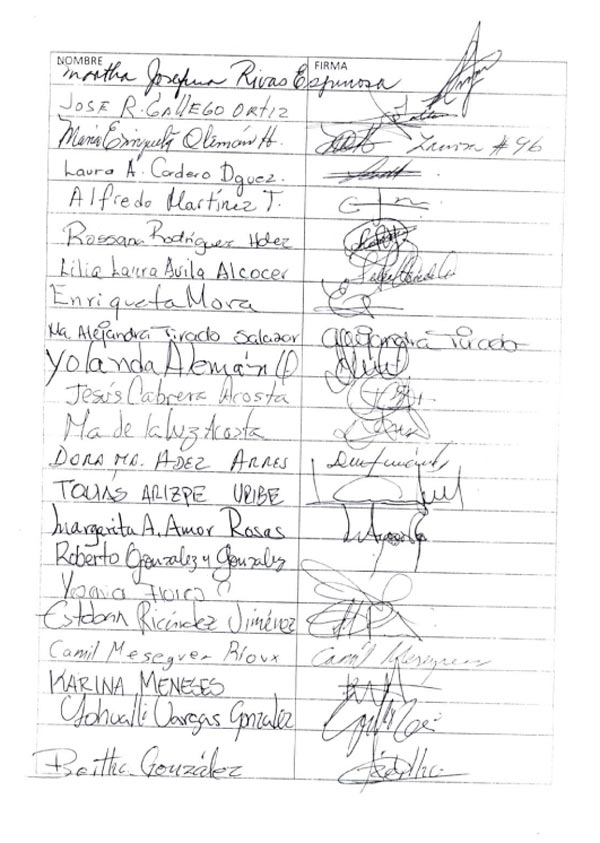 NOMBRE FIRMA
Martha Josefina Rivas Espinosa
JOSE R. GALLEGO ORTIZ
María Enriqueta Alemán H. # 96
Laura A. Cordero Dguez.
Alfredo Martínez T.
Rossana Rodríguez Hdez
Lilia Laura Avila Alcocer
Enriqueta Mora
Ma. Alejandra Tirado Salazar Alejandra Tirado
Yolanda Alemán
Jesús Cabrera Acosta
Ma de la Luz Acosta
DORA MA.
TOMÁS ARIZPE URIBE
Margarita A. Amor Rosas
Roberto Gonzalez y Gonzalez
Esteban Jiménez
Camil Meseguer Rioux Camil Meseguer
KARINA MENESES
Yohualli Vargas Gonzalez
Bertha González